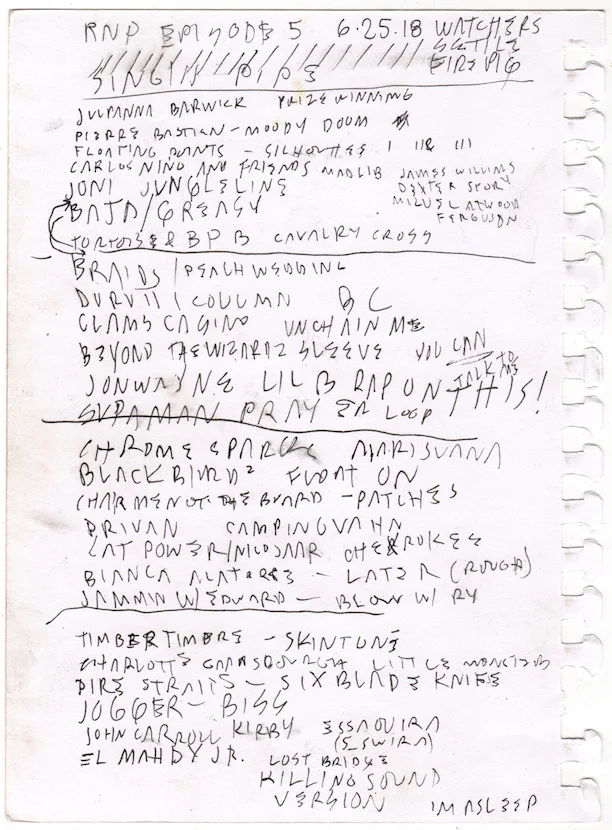 RNP EPISODE 5 6.25.18 WATCHERS
SETTLE
FIRE PIG
SINGIN PIPE
JULIANNA BARWICK PRIZEWINNING
PIERRE BASTIEN - MOODY DOOM
FLOATING POINTS - SILHOUTTES I II & III
CARLOS NINO AND FRIENDS MADLIB JAMES WILLIAMS
DEXTER STORY
MIGUEL ATWOOD
FERGUSON
JONI JUNGLELINE
BATA/GREASY
TORTOISE & BPB CAVALRY CROSS
BRAIDS / PEACH WEDDING
DURUTTI COLUMN BC
CLAMS CASINO UNCHAIN ME
BEYOND THE WIZARDZ SLEEVE YOU CAN
TALK TO ME
JONWAYNE LIL B RAP ON THIS!
SUPAMAN PRAY ER LOOP
CHROME SPARKS MARIJUANA
BLACKBIRD² FLOAT ON
CHARMENOT THE BOARD - PATCHES
CAMPINGVAHN
CAT POWER/NICO JAAR CHEROKEE
BIANCA - LATER (ROUGH)
JAMMIN W/ EDWARD - BLOW W/ RY
TIMBER TIMBRE - SKINTONE
CHARLOTTE GAINSBOURGH LITTLE MONSTERS
DIRE STRAITS - SIX BLADE KNIFE
JOGGER - BISS
JOHN CARROLL KIRBY ESSAOUIRA
(S_SWIRA)
EL MAHDY JR. LOST BRIDGE
KILLING SOUND
VERSION IM ASLEEP